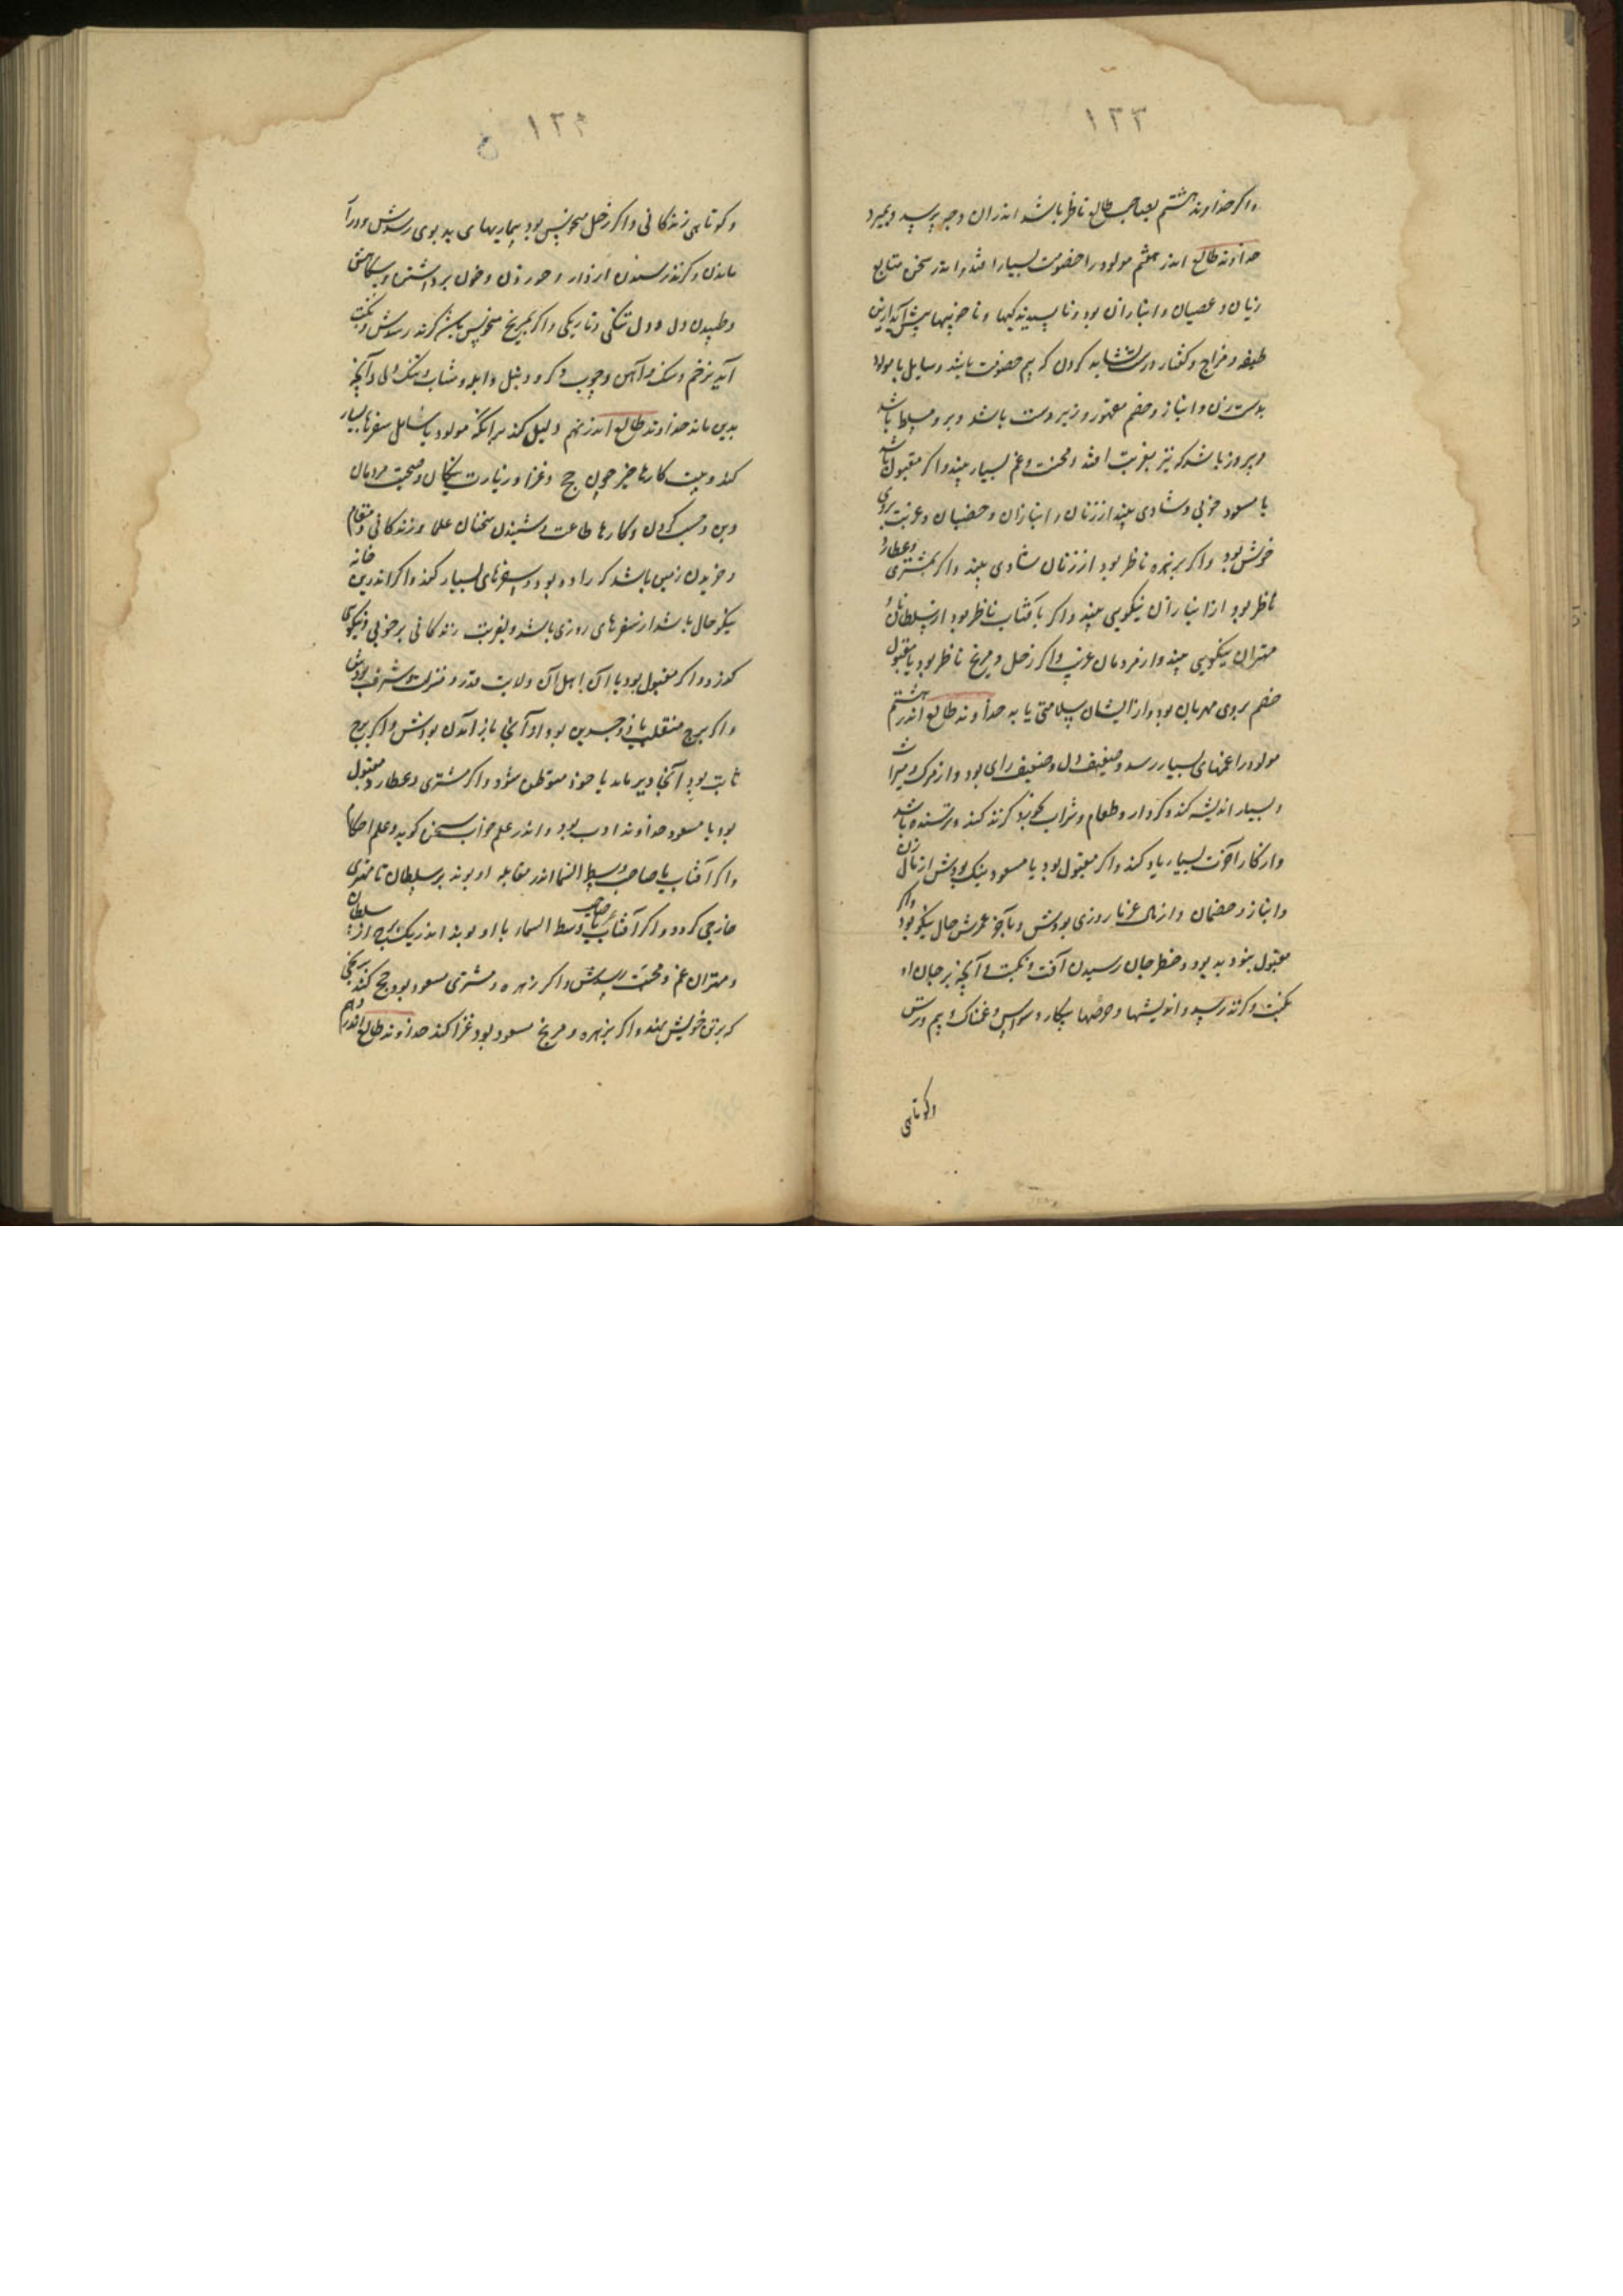 ۱۲۳
واکر خداوند هشتم بصاحب طالع ناظر باشد اندران وجه برسد وبمیرد
خداوند طالع اندر هفتم مولود را خصومت بسیار افتد واندر سخن متابع
زنان وعصیان وانبازان بود وناپسندیدکیها وناخوبیها پیش آید ازین
طبع ومزاج وکفتار کردن که بیم خصومت باشد وسایل با مولود
بدست زن وانباز وخصم مقهور وزیردست باشد وبرو مسلط باشد
وپیروز باشد که نیز بغربت افتد ومحنت وغم بسیار بیند واکر مقبول باشد
با مسعود خوبی وشادی بیند از زنان وانبازان وخصمان وغربت بروی
خوش بود واکر بزهره ناظر بود از زنان شادی بیند واکر بمشتری وعطارد
ناظر بود از انبازان نیکویی بیند واکر بآفتاب ناظر بود از سلطانان و
مهتران نیکویی بیند واز مردمان غریب واکر زحل ومریخ ناظر بود یا مقبول
خصم بروی مهربان بود واز ایشان سلامتی یابد خداوند طالع اندر هشتم
مولود را غمهای بسیار رسد وضعیف دل وضعیف رای بود واز مرک ومیراث
وبسیار اندیشه کند وکردار وطعام وشراب کند وترسنده باشد
واز کار آخرت بسیار یاد کند واکر مقبول بود یا مسعود نیک بودش از مال زن
وانباز وخصمان واز مال غربا روزی بودش وبآخر عمرش حال نیکو بود واکر
مقبول نبود بد بود وخطر جان رسیدن آفت ونکبت وآنچه بر جان او
نکبت وکزند رسد واندیشها وحرصها بیکار وسواس وغمناک وبیم وترس
وکوتاهی
۱۲۴
وکوتاهی زندکانی واکر زحل منحوس بود بیماریهای بد بوی رسدش ودرآ
ماندن وکزند رسیدن از دار و خوردن وخون برداشتن وبیکاهش
وطپیدن دل ودل تنکی وتاریکی واکر بمریخ منحوس باشد کزند رسدش ونکبت
آید بزخم وسنک وآهن وچوب وکرد ودمل وابله ومثانه وتنک دلی وآنچه
بدین ماند خداوند طالع اندر نهم دلیل کند برانکه مولود با شامل سفرها بسیار
کند وبیت کارها خیر چون حج وغزا وزیارت نیکان وصحبت مردمان
دین وحسب کردن وکارها طاعت وشنیدن سخنان علما وزندکانی ومقام
وخریدن زمین باشد که راد بود وسفرهای بسیار کند واکر اندرین خانه
نیکو حال باشد از سفرهای روزی باشد وبغربت زندکانی برخوبی ونیکوی
کذرد واکر مقبول بود با آن اهل آن ولایت قدر ومنزلت وشرف بودش
واکر برج منقلب یا ذوجسدین بود او آنجا باز آمدن بودش واکر برج
ثابت بود آنجا دیر ماند یا خود متوطن شود واکر مشتری وعطارد مقبول
بود یا مسعود خداوند ادب بود واندر علم خواب سخن کوید وعلم احکام
واکر آفتاب یا صاحب وسط السما اندر مقابله او بوند بر سلطان یا مهتری
خارجی کردد واکر آفتاب یا صاحب وسط السماء با او بوند اندر یک برج از سلطان
ومهتران غم ومحنت رسدش واکر زهره ومشتری مسعود بود حج کند رنجی
که برتن خویش نهد واکر بزهره ومریخ مسعود بود غزا کند خداوند طالع اندر دهم